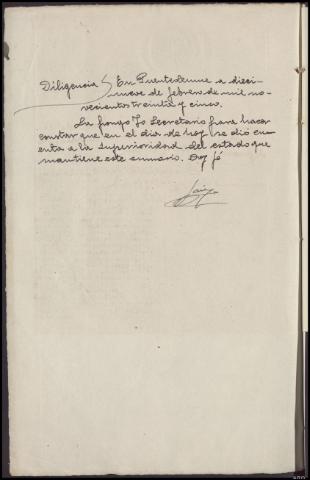 Diligencia } En Puentedeume a dieci-
nueve de febrero de mil no-
vecientos treinta y cinco.
La pongo Yo Secretario para hacer
constar que en el dia de hoy se dió cu-
enta a la Superioridad del estado que
mantiene este sumario. Doy fé